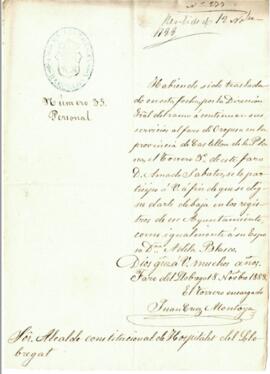 Nº 277
Recibido 12 Nbre
1888
Número 33.
Personal
Habiendo sido traslada
do en esta fecha por la Dirección
Gral del ramo a continuar sus
servicios al faro de Oropesa en la
provincia de Castellon de la Pla
na, el torrero 3º de este faro
D. Amado Sabater, se lo par
ticipo á V. á fin de que se dig
ne darle de baja en los registros
de ese Ayuntamiento,
como igualmente á su espo
sa Dña Adela Blasco.
Dios gue á V. muchos años.
Faro del Llobregat 8 Novbre 1888.
El Torrero encargado
Juan Cruz Montoya
Sor. Alcalde constitucional de Hospitalet del Llo
bregat